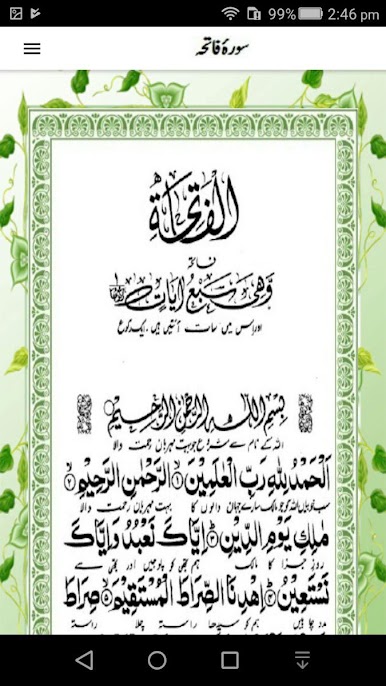 99% 2:46 pm
سورۂ فاتحہ
الفَاتِحَة
فاتحہ
وَهِيَ سَبْعُ اٰيَاتٍ
اور اس میں سات آئتیں ہیں ،ایک رکوع
بِسْمِ اللهِ الرَّحْمٰنِ الرَّحِيْمِ
اللہ کے نام سے شروع جو بہت مہربان رحمت والا
اَلْحَمْدُ لِلّٰهِ رَبِّ الْعٰلَمِيْنَ ۝۱ الرَّحْمٰنِ الرَّحِيْمِ ۝۲
سب خوبیاں اللہ کو جو مالک سارے جہان والوں کا بہت مہربان رحمت والا
مٰلِكِ يَوْمِ الدِّيْنِ ۝۳ اِيَّاكَ نَعْبُدُ وَاِيَّاكَ
روزِ جزا کا مالک ہم تجھی کو پوجیں اور تجھی سے
نَسْتَعِيْنُ ۝۴ اِهْدِنَا الصِّرَاطَ الْمُسْتَقِيْمَ ۝۵ صِرَاطَ
مدد چاہیں ہم کو سیدھا راستہ چلا راستہ